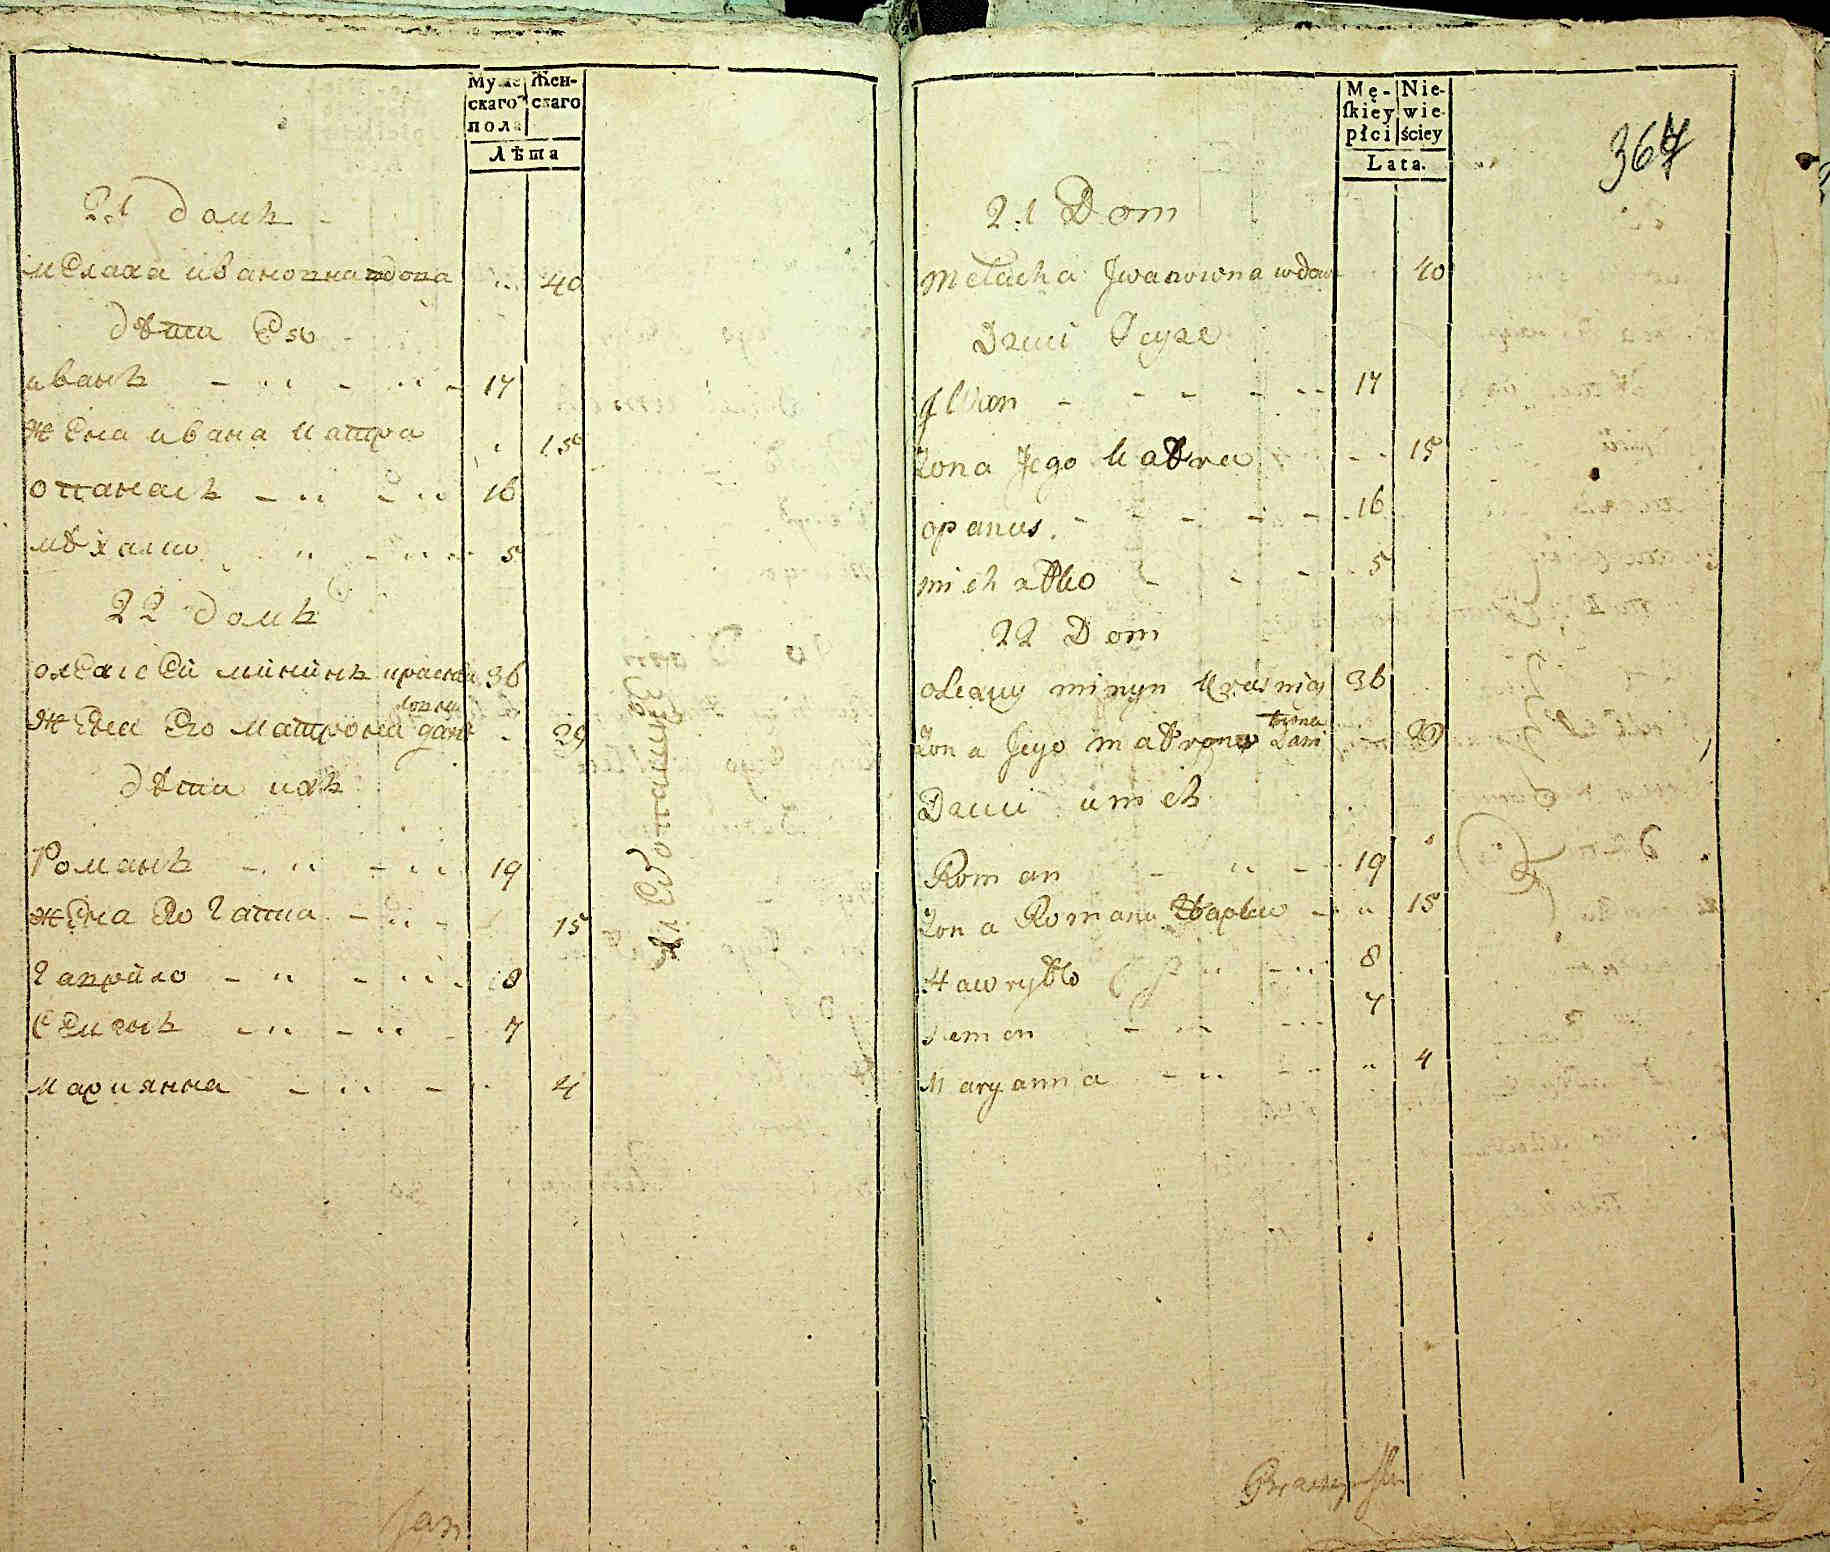 Муже скаго пола
Жен- скаго
Лѣта
21 домъ
мелаха ивановна вдова 40
дѣти Ея
иванъ 17
жена ивана катра 15
опанасъ 16
мѣхалко 5
22 домъ
олексей мининъ 36
жена Его матрона 29
дѣти ихъ
Романъ 19
жена Его гапка 15
гаврило 8
Семенъ 7
марианна 4
Jan
Mę- skiey płci
Nie- wie- ściey
Lata.
367
21 Dom
Melacha Jwanowna wdowa 40
Dzieci Jeyze
Jwan 17
Żona Jego katra 15
opanas 16
michałko 5
22 Dom
olexiy minyn 36
Żona Jego matrona 29
Dzieci imich
Roman 19
Żona Romana Hapka 15
Hawryło 8
Semen 7
Maryanna 4